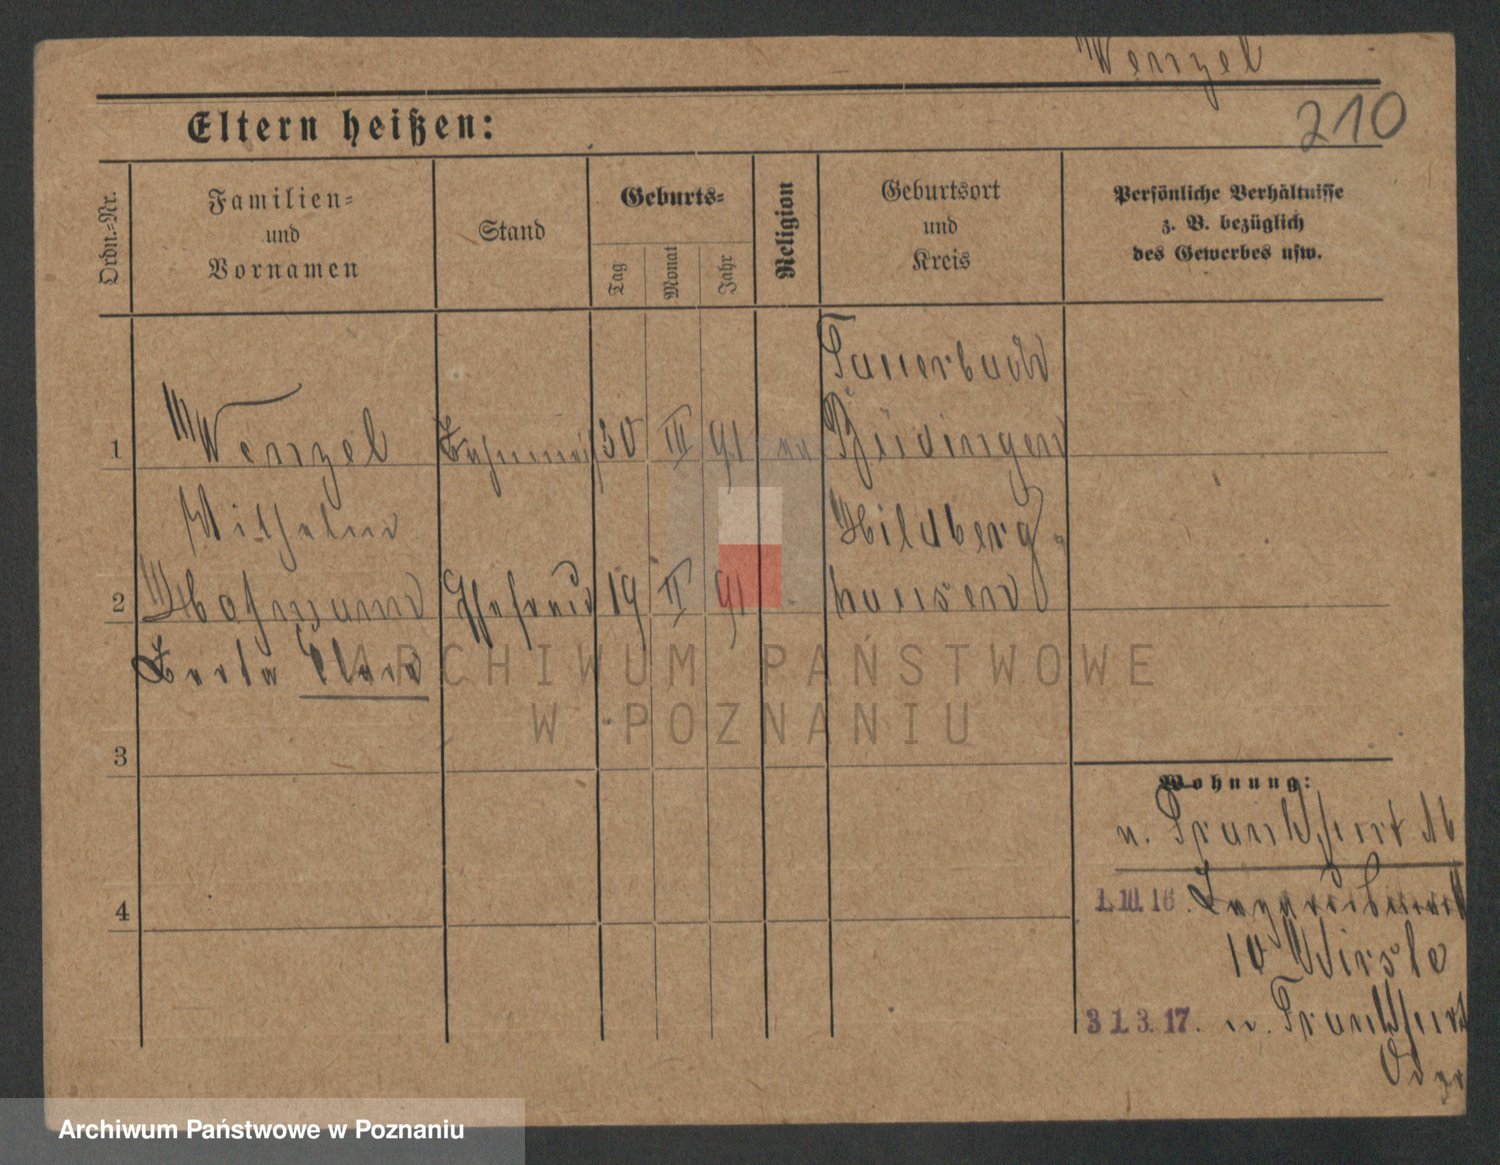 Wenzel
210
Eltern heißen:
Ordn.=Nr.
Familien=
und
Vornamen
Stand
Geburts=
Tag
Monat
Jahr
Religion
Geburtsort
und
Kreis
Persönliche Verhältnisse
z. B. bezüglich
des Gewerbes usw.
1
Wenzel
Wilhelm
30 III 91
Büdingen
2
Berta Clara
Ehefrau
19 II 91
Hildberg=
hausen
3
4
Wohnung:
n. Frankfurt
1.10.16.
10 Wirsle
31.3.17. n. Frankfurt
Oder
ARCHIWUM PAŃSTWOWE
W POZNANIU
Archiwum Państwowe w Poznaniu